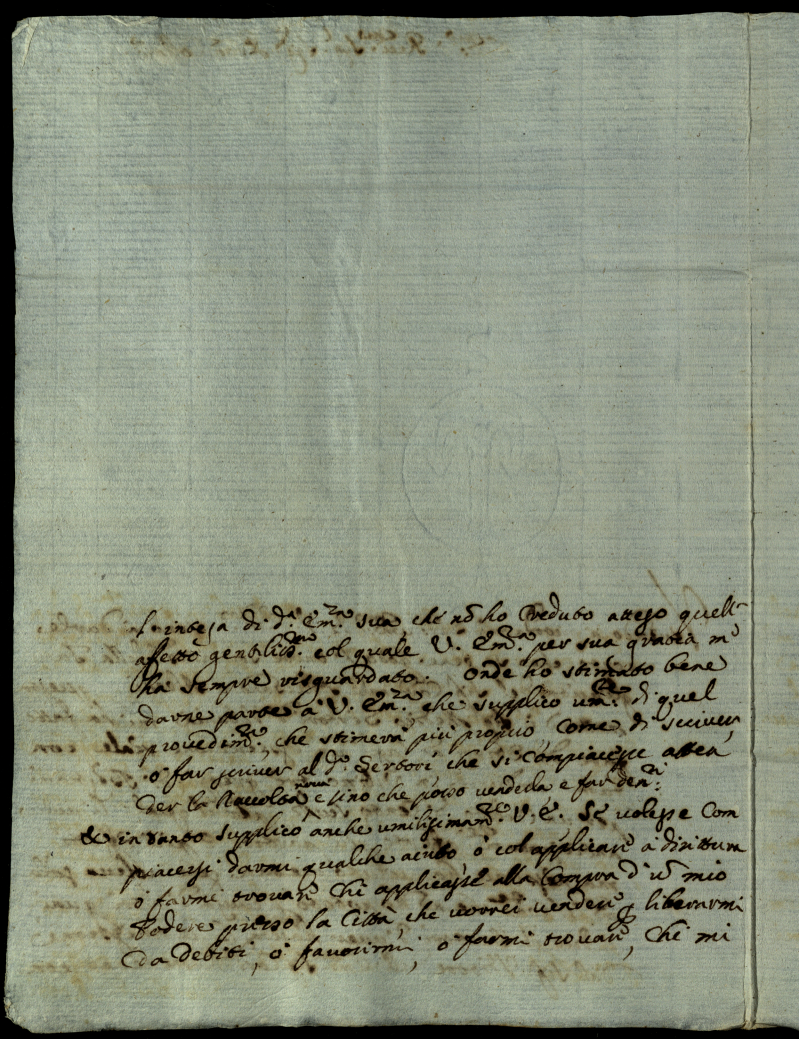 l'intesa di d.ª Em.ª sua che nõ ho creduto atteso quell'
affetto gentiliss.º col quale V. Em.ª per sua gratia m'
ha sempre risguardato. Onde ho stimato bene
darne parte à V. Em.ª che supplico um.te di quel
provedim.to che stimerà più proprio come di scriver,
ò far scriver al d.º Serbori che si compiacesse atten
der la Raccolta nova e sino che posso venderla e far den.ri
& in tanto supplico anche umilissimam.te V. E. se volesse com
piacersi darmi qualche aiuto ò col applicare à dirittura
ò farmi trovare chi applicasse alla compra d'ũ mio
Podere presso la Città, che vorrei vendere p liberarmi
da debiti, ò favorirmi, ò farmi trovare, chi mi